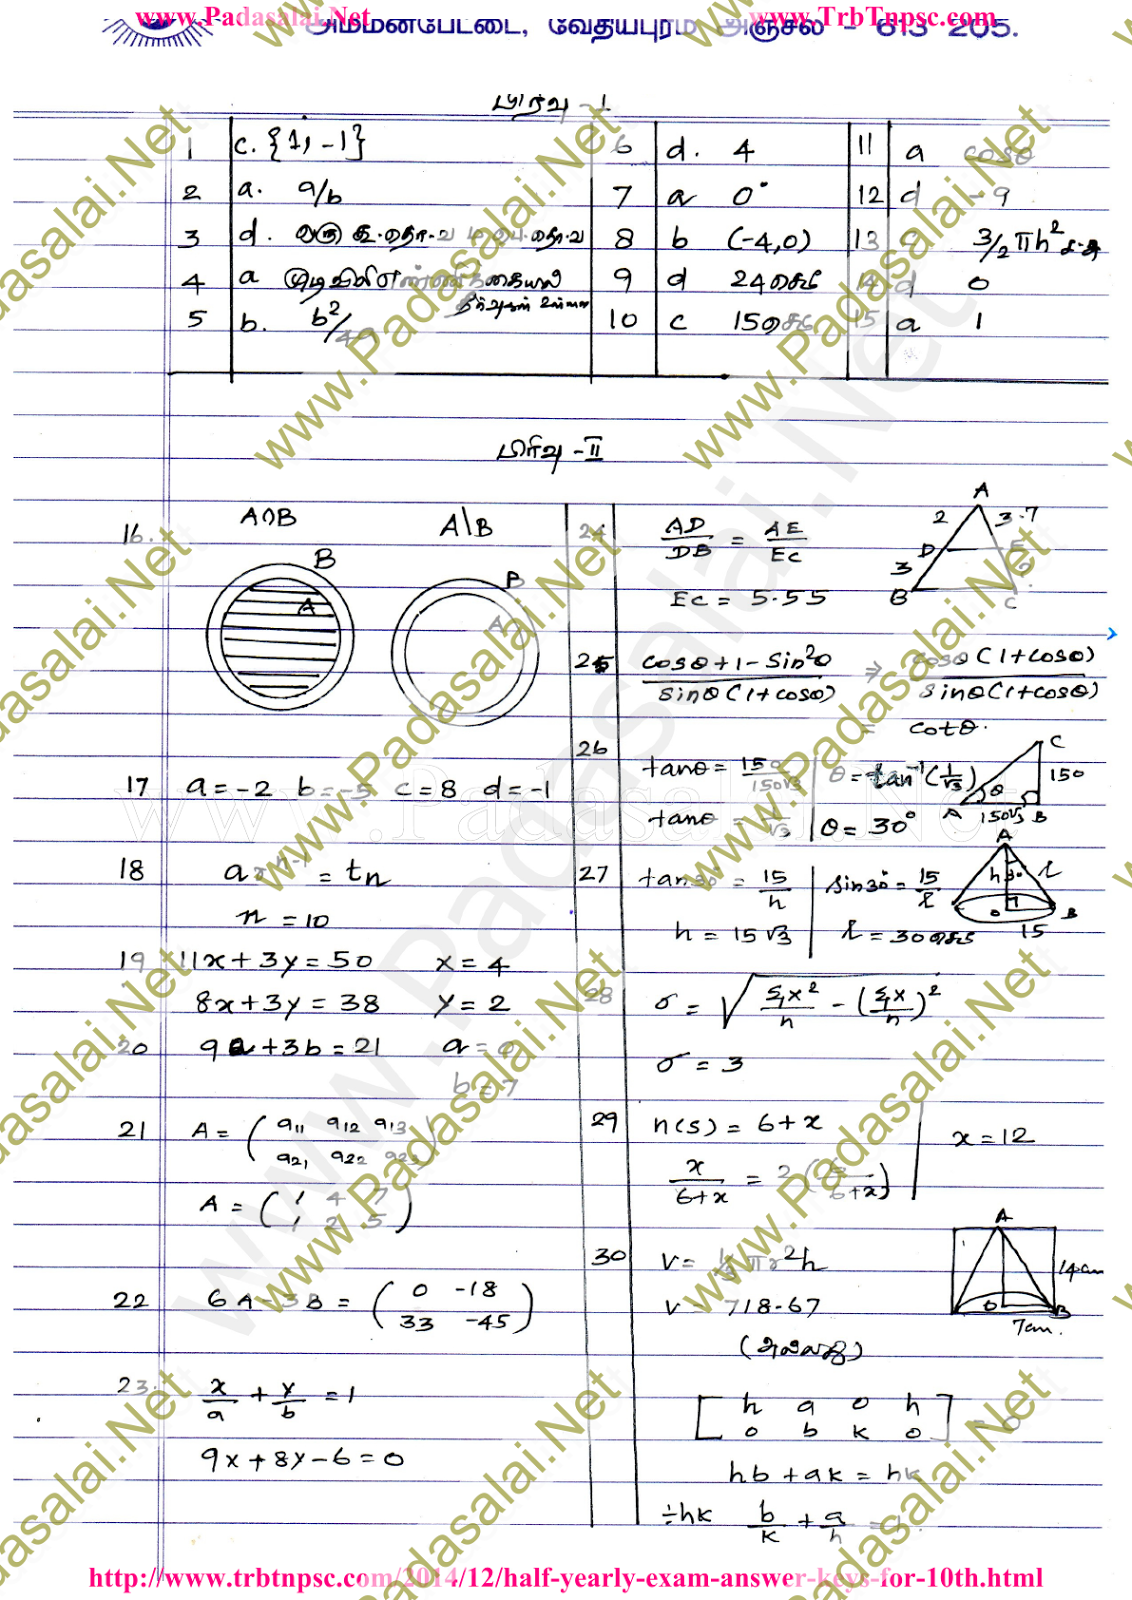 www.Padasalai.Net www.TrbTnpsc.com
அம்மன்பேட்டை, வேதியபுரம் அஞ்சல் - 613 205.
பிரிவு - I
1 c. {1, -1} 6 d. 4 11 a cosθ
2 a. a/b 7 a 0° 12 d -9
3 d. ஒரு 8 b (-4,0) 13 c 3/2 πh² ச.அ
4 a முடிவிலி எண்ணிக்கையில் தீர்வுகள் உள்ளன 9 d 24செமீ 14 d 0
5 b. b²/49 10 c 15செமீ 15 a 1
பிரிவு - II
16. A∩B A\B
B A B A
17 a = -2 b = -5 c = 8 d = -1
18 ar^(n-1) = tn
n = 10
19 11x + 3y = 50 x = 4
8x + 3y = 38 y = 2
20 9a + 3b = 21 a = 0
b = 7
21 A = ( a11 a12 a13
a21 a22 a23 )
A = ( 1 4 7
1 2 5 )
22 6A - 3B = ( 0 -18
33 -45 )
23. x/a + y/b = 1
9x + 8y - 6 = 0
24 AD/DB = AE/EC
EC = 5.55
A 2 3.7 D E 3 B C
25 cosθ + 1 - sin²θ / sinθ(1+cosθ) ⇒ cosθ(1+cosθ) / sinθ(1+cosθ)
= cotθ.
26 tanθ = 150/150√3 θ = tan⁻¹(1/√3)
tanθ = 1/√3 θ = 30°
C 150 θ A 150√3 B
27 tan30° = 15/h sin30° = 15/l
h = 15√3 l = 30செமீ
A h 30 l O B 15
28 σ = √(Σx²/n - (Σx/n)²)
σ = 3
29 n(S) = 6 + x x = 12
x/6+x = 2(6/6+x)
30 V = 1/3 πr²h
V = 718.67
A 14cm O B 7cm.
(அல்லது)
[ h a 0 h
0 b k 0 ] = 0
hb + ak = hk
÷hk b/k + a/h =
http://www.trbtnpsc.com/2014/12/half-yearly-exam-answer-keys-for-10th.html